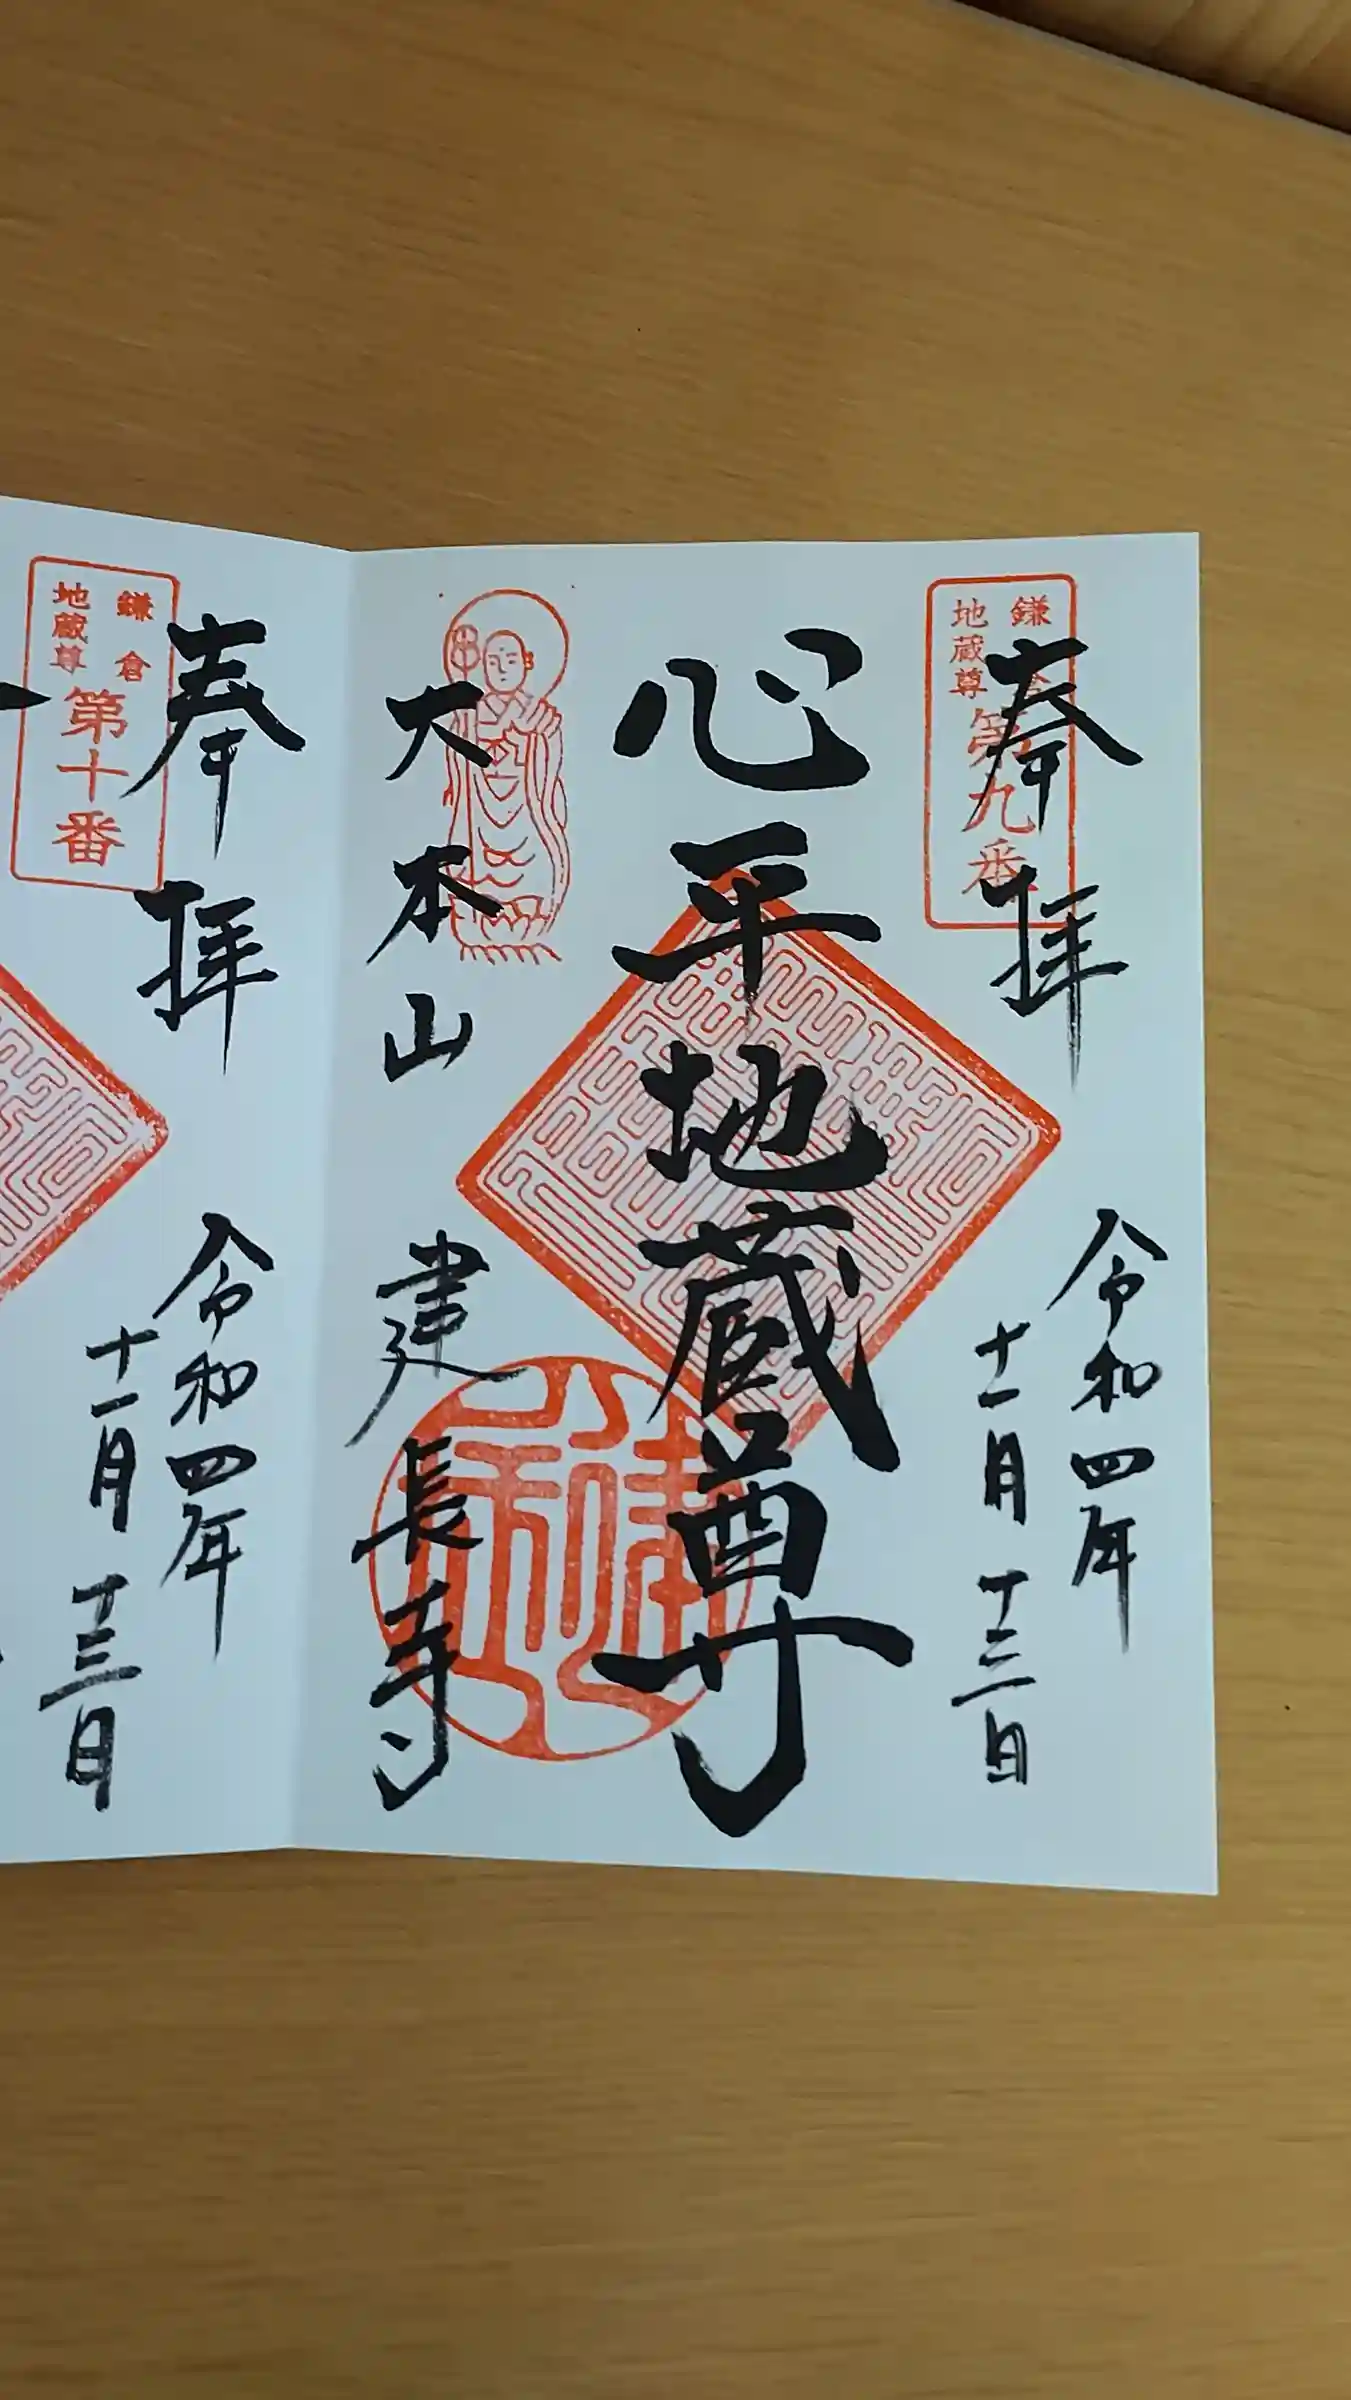 奉拝
鎌倉
地蔵尊
第九番
令和四年
十一月十三日
心平地蔵尊
大本山
建長寺
奉拝
鎌倉
地蔵尊
第十番
令和四年
十一月十三日